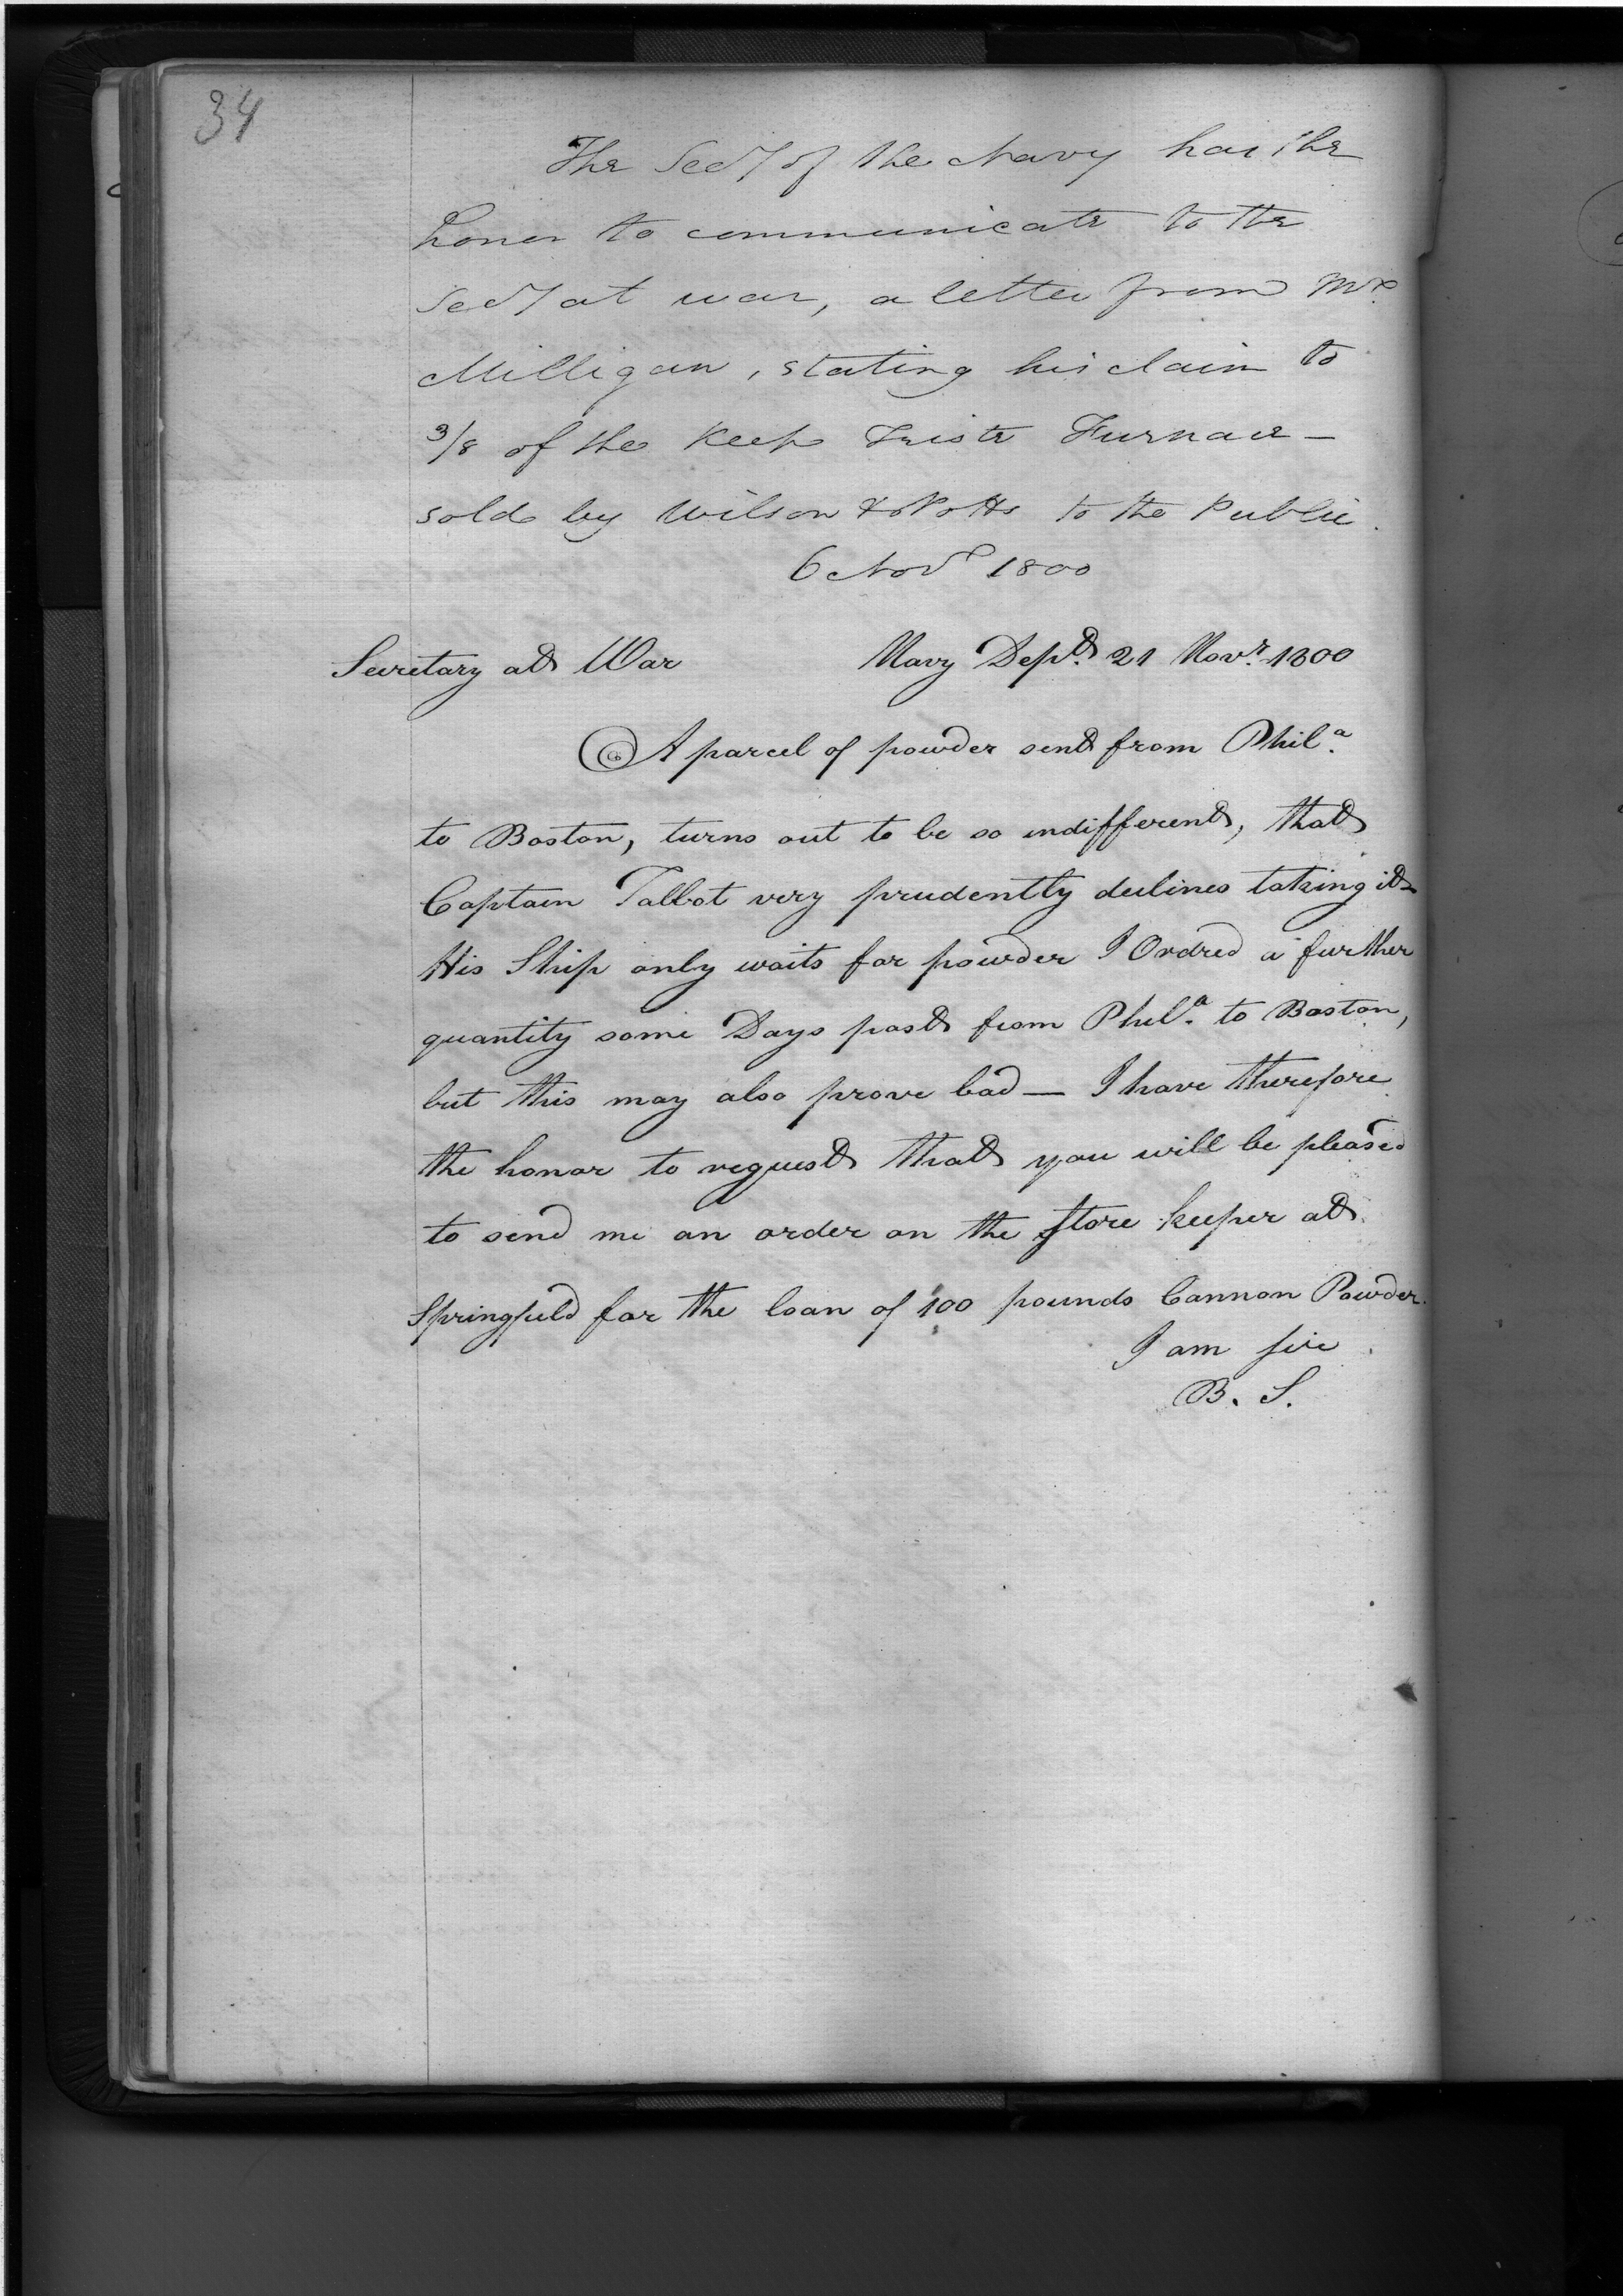 34
The Secy of the Navy has the
honor to communicate to the
Secy at war, a letter from Mr.
Milligan, stating his claim to
3/8 of the Keep Triste Furnace —
sold by Wilson & Potts to the Public.
6 Novr 1800
Secretary at War Navy Dept. 21 Novr. 1800
A parcel of powder sent from Phila.
to Boston, turns out to be so indifferent, that
Captain Talbot very prudently declines taking it—
His Ship only waits for powder I Ordred a further
quantity some Days past from Phila. to Boston,
but this may also prove bad — I have therefore
the honor to request that you will be pleased
to send me an order on the Store keeper at
Springfield for the loan of 100 pounds Cannon Powder.
I am sir
B. S.